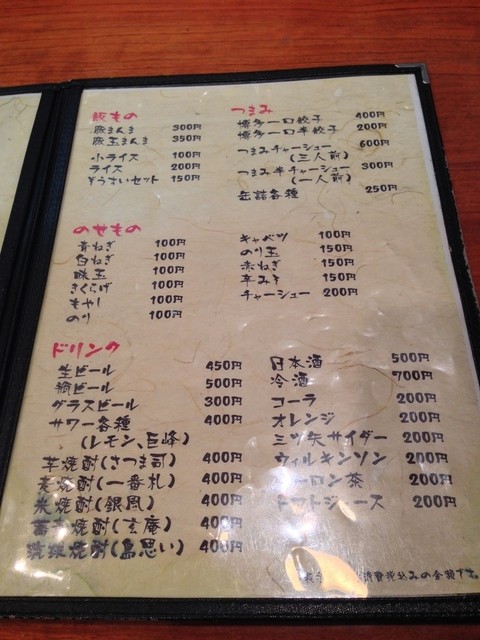 飯もの
豚まんま 300円
豚玉まんま 350円
小ライス 100円
ライス 200円
ぞうさいセット 150円
つまみ
博多一口餃子 400円
博多一口半餃子 200円
つまみチャーシュー 600円
(三人前)
つまみ半チャーシュー 300円
(一人前)
缶詰各種 250円
のせもの
青ねぎ 100円
白ねぎ 100円
味玉 100円
きくらげ 100円
もやし 100円
のり 100円
キャベツ 100円
のり玉 150円
赤ねぎ 150円
辛みそ 150円
チャーシュー 200円
ドリンク
生ビール 450円
瓶ビール 500円
グラスビール 300円
サワー各種 400円
(レモン、巨峰)
芋焼酎(さつま司) 400円
麦焼酎(一番札) 400円
米焼酎(銀風) 400円
蕎麦焼酎(玄庵) 400円
琉球焼酎(島思い) 400円
日本酒 500円
冷酒 700円
コーラ 200円
オレンジ 200円
三ツ矢サイダー 200円
ウィルキンソン 200円
ウーロン茶 200円
トマトジュース 200円
消費税込みの金額です。